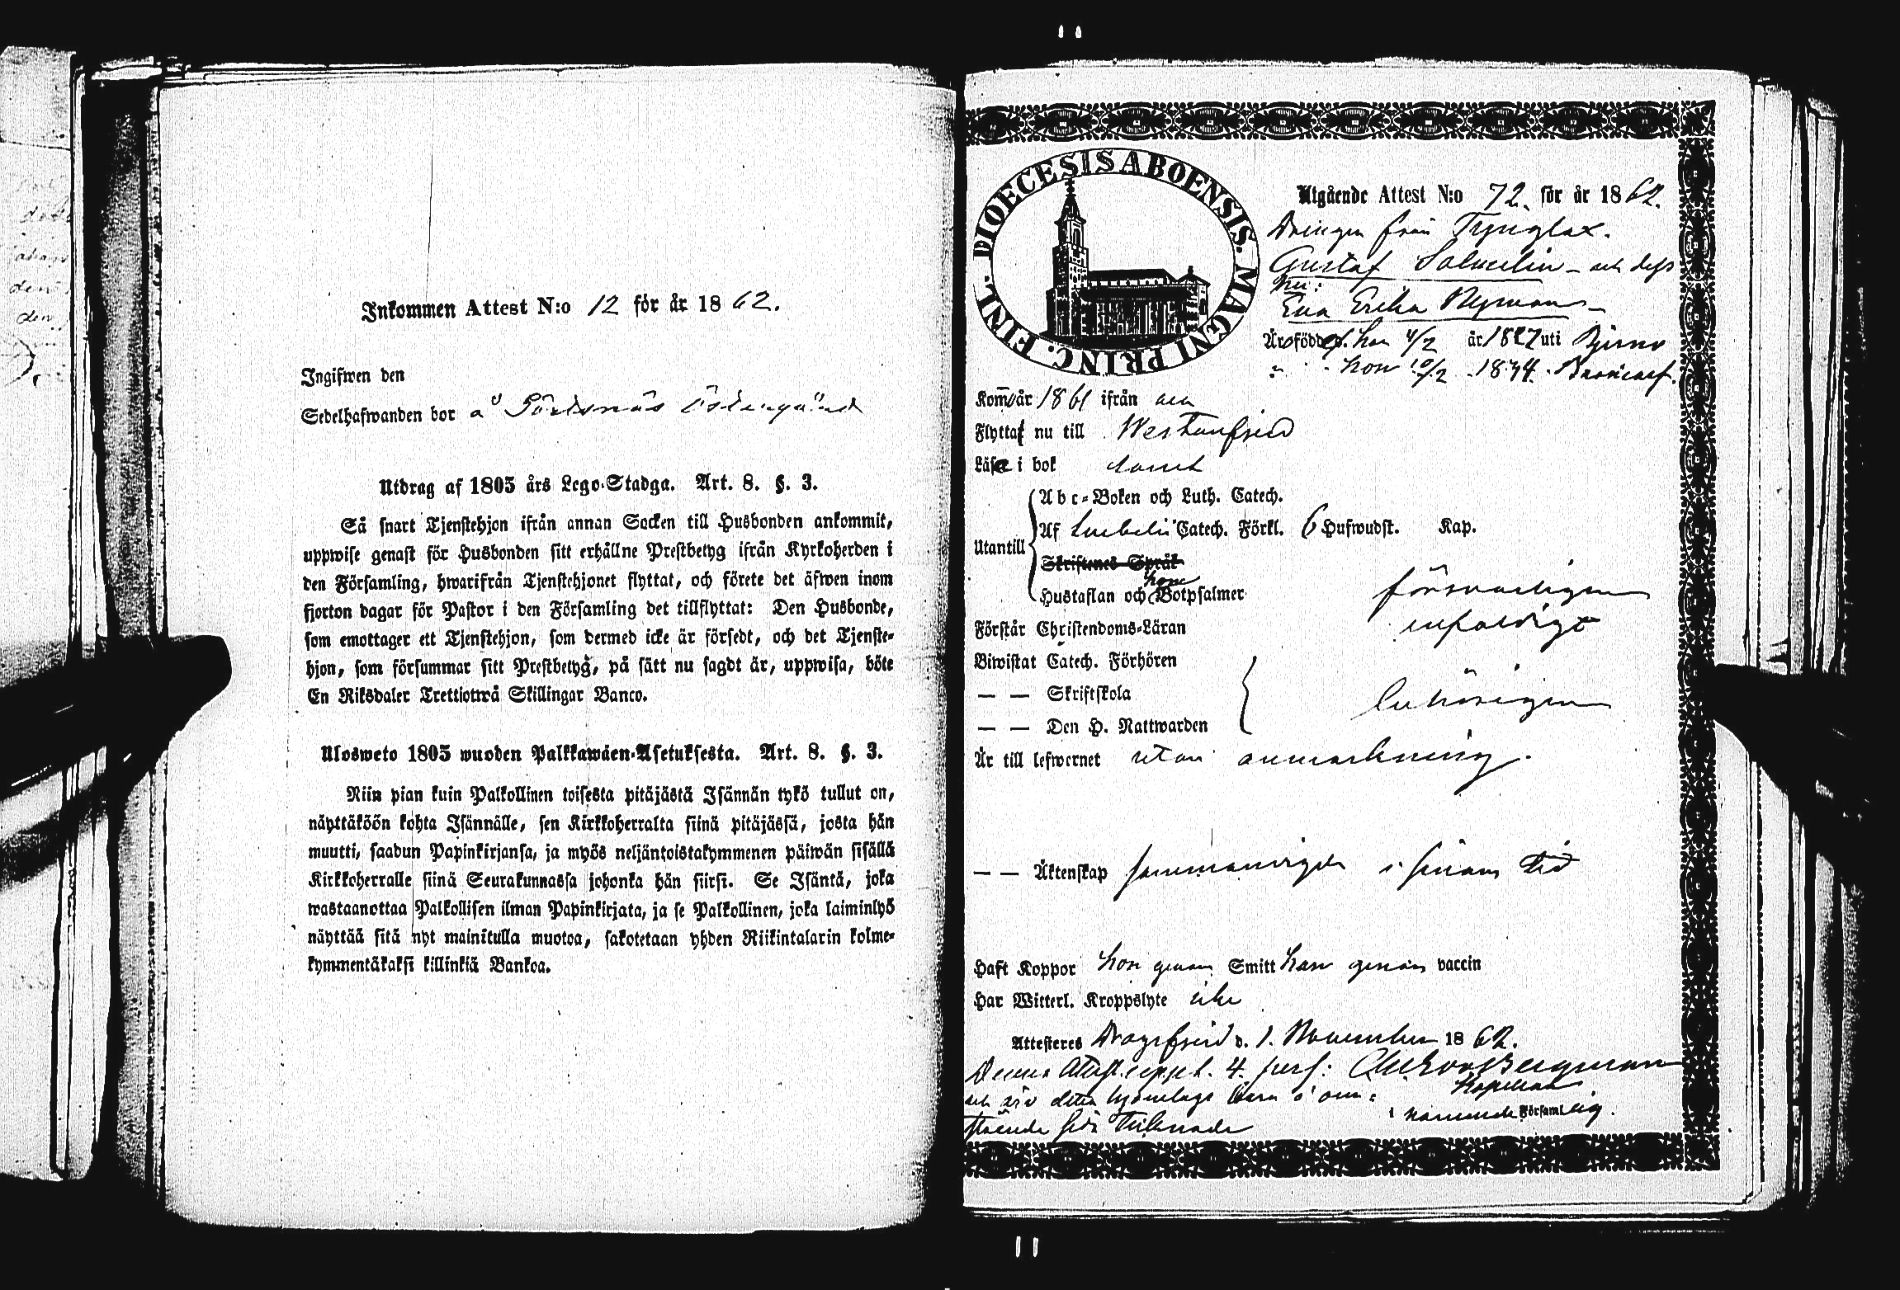 Inkommen Attest N:o 12 för år 1862.
Ingifwen den
Sedelhafwanden bor å Östergård
Utdrag af 1805 års Lego-Stadga. Art. 8. §. 3.
Så snart Tjenstehjon ifrån annan Socken till Husbonden ankommit,
uppwise genast för Husbonden sitt erhållne Prestbetyg ifrån Kyrkoherden i
den Församling, hwarifrån Tjenstehjonet flyttat, och förete det äfwen inom
fjorton dagar för Pastor i den Församling det tillflyttat: Den Husbonde,
som emottager ett Tjenstehjon, som dermed icke är försedt, och det Tjenste-
hjon, som försummar sitt Prestbetyg, på sätt nu sagdt är, uppwisa, böte
En Riksdaler Trettiotwå Skillingar Banco.
Ulosweto 1805 wuoden Palkkawäen-Asetuksesta. Art. 8. §. 3.
Niin pian kuin Palkollinen toisesta pitäjästä Isännän tykö tullut on,
näyttäköön kohta Isännälle, sen Kirkkoherralta siinä pitäjässä, josta hän
muutti, saadun Papinkirjansa, ja myös neljäntoistakymmenen päiwän sisällä
Kirkkoherralle siinä Seurakunnassa johonka hän siirsi. Se Isäntä, joka
wastaanottaa Palkollisen ilman Papinkirjata, ja se Palkollinen, joka laiminlyö
näyttää sitä nyt mainitulla muotoa, sakotetaan yhden Riikintalarin kolme-
kymmentäkaksi killinkiä Bankoa.
DIOECESIS ABOENSIS. MAGNI PRINC. FINL.
Utgående Attest N:o 72. för år 1862.
Drängen från Tynglax.
Gustaf Salmelin och dess
hu:
Eva Erika Nyman
Äro födde han 4/2 år 1827 uti Bjerno
hon 10/2 1834
Kom år 1861 ifrån
Flyttat nu till Westanfjerd
Läsa i bok
Utantill
Abc-Boken och Luth. Catech.
Af Catech. Förkl. 6 Hufwudst. Kap.
Skriftenes Språk
hon
Hustaflan och Botpsalmer
försvarligen
Förstår Christendoms-Läran enfaldigt
Biwistat Catech. Förhören
— — Skriftskola
behörigen
— — Den H. Nattwarden
Är till lefwernet utan anmärkning.
— — Äktenskap sammanvigde i sinom tid
Haft Koppor hon genom Smitt han genom vaccin
Har Witterl. Kroppslyte icke
Attesteres Dragsfjerd d. 1. November 1862.
Denna Attest 4. pers: Bergman
Kapellan
i nämnde Församling.
stående sida